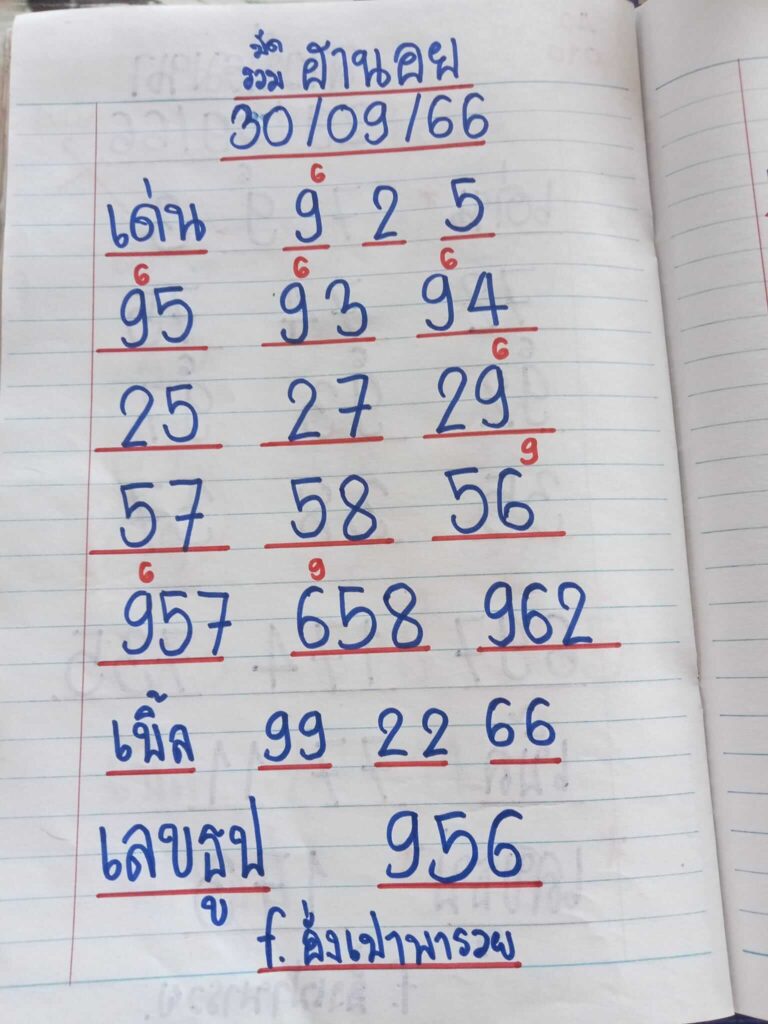 มัด
รวม ฮานอย
30/09/66
6
เด่น 9 2 5
6 6 6
95 93 94
6
25 27 29
9
57 58 56
6 9
957 658 962
เบิ้ล 99 22 66
เลขธูป 956
f. อึ่งเปาพารวย